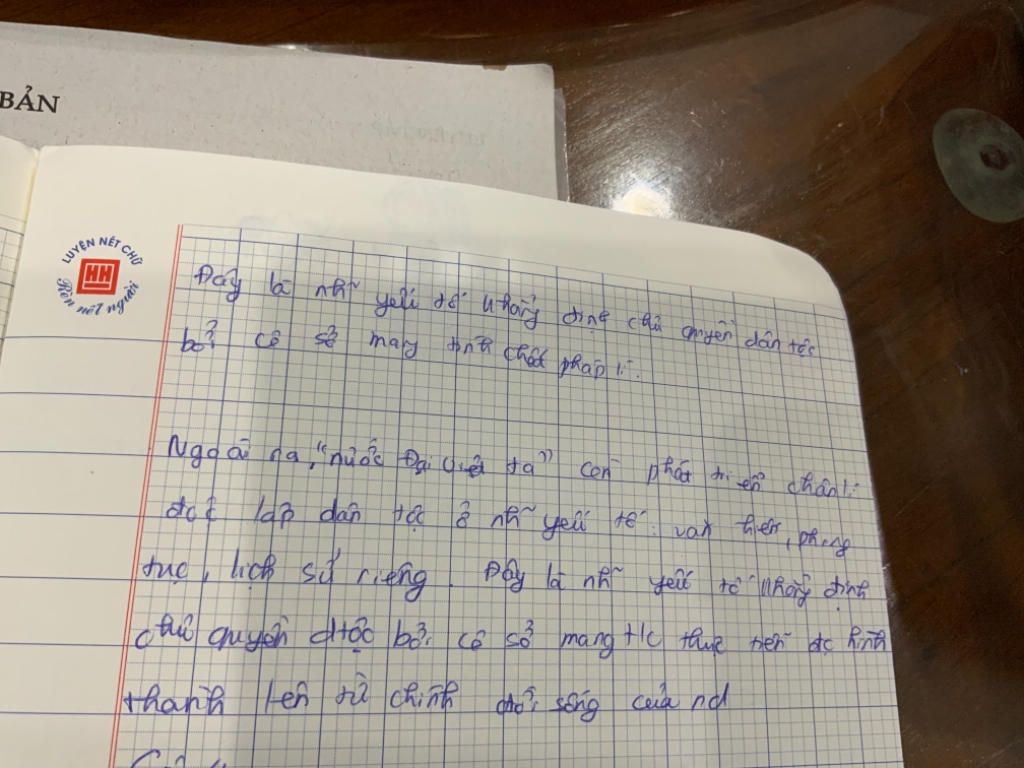 BẢN
LUYỆN NÉT CHỮ
HH
Rèn nết người
Đây là nh~ yếu tố khẳng định chủ quyền dân tộc
bởi cơ sở mang tính chất pháp lí.
Ngoài ra, "nước Đại Việt ta" còn phát triển chân lí
độc lập dân tộc ở nh~ yếu tố: văn hiến, phong
tục, lịch sử riêng. Đây là nh~ yếu tố khẳng định
chủ quyền dtộc bởi cơ sở mang t/c thực tiễn đc hình
thành lên từ chính đời sống của nd